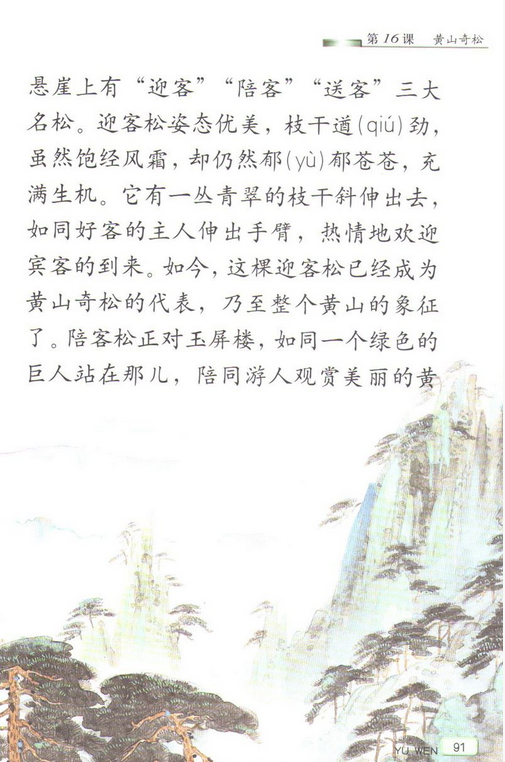 第16课 黄山奇松
悬崖上有“迎客”“陪客”“送客”三大
名松。迎客松姿态优美，枝干遒(qiú)劲，
虽然饱经风霜，却仍然郁(yù)郁苍苍，充
满生机。它有一丛青翠的枝干斜伸出去，
如同好客的主人伸出手臂，热情地欢迎
宾客的到来。如今，这棵迎客松已经成为
黄山奇松的代表，乃至整个黄山的象征
了。陪客松正对玉屏楼，如同一个绿色的
巨人站在那儿，陪同游人观赏美丽的黄
YU WEN 91